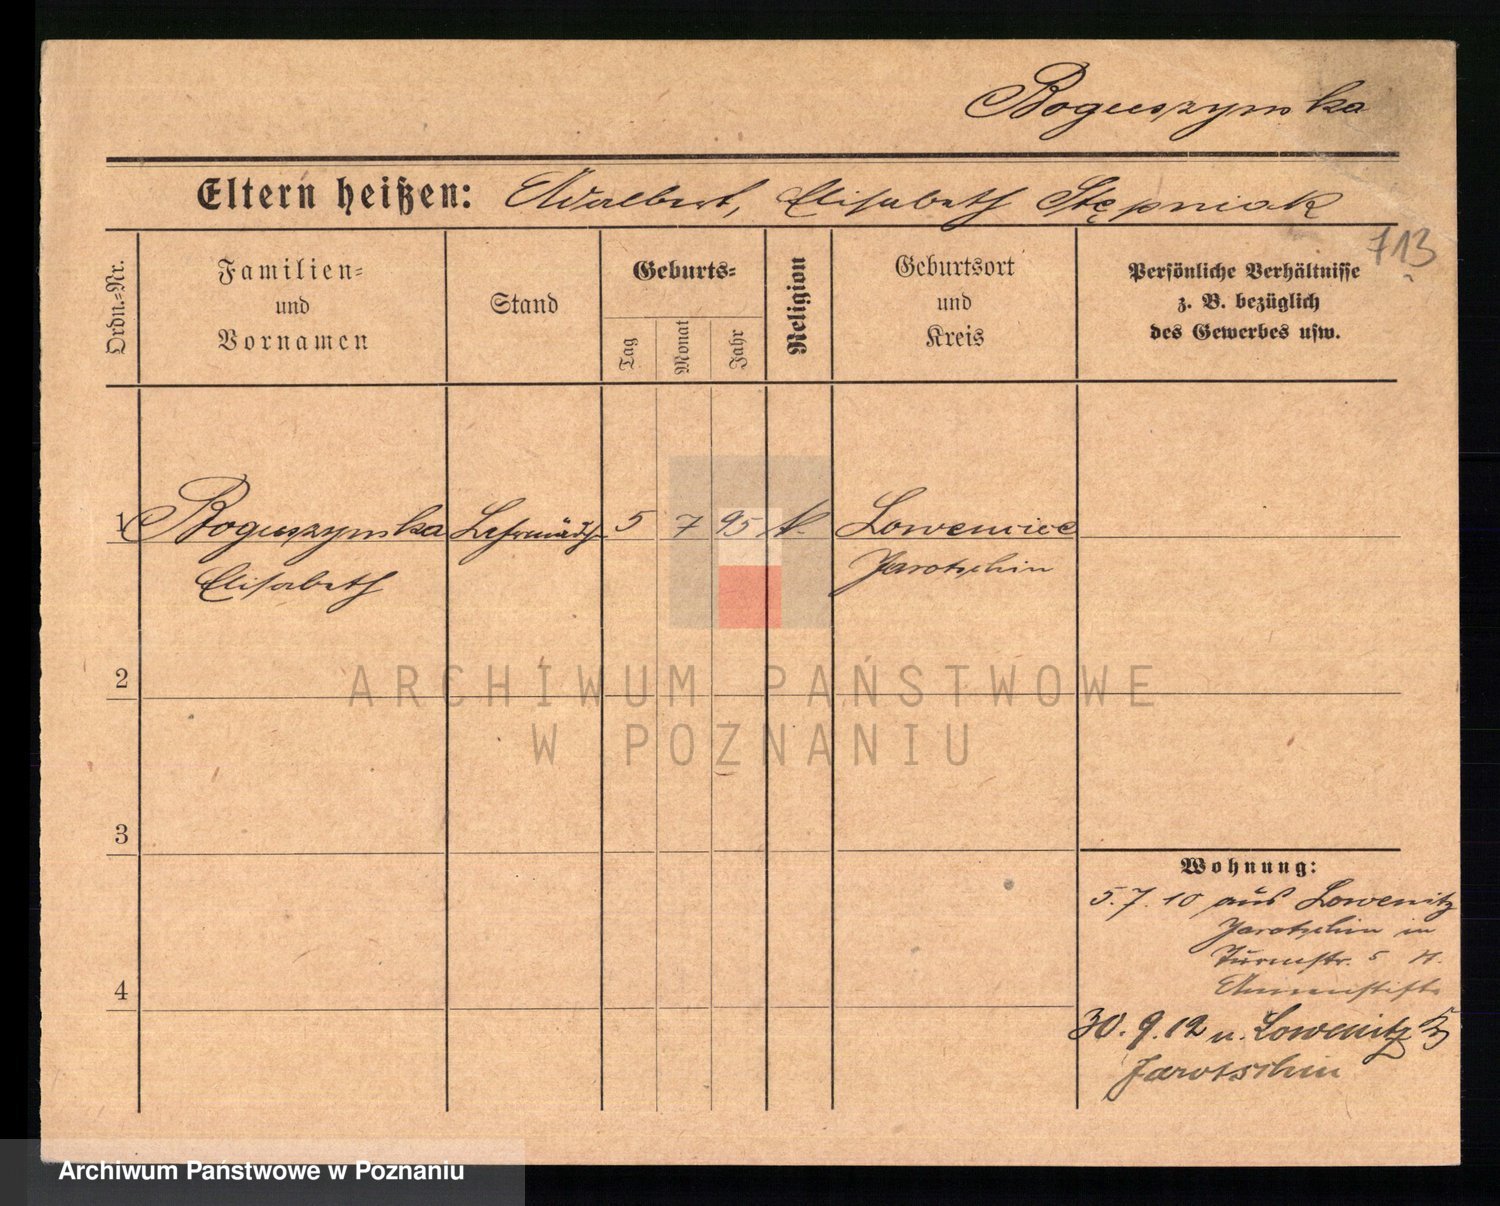 Boguszynska
Eltern heißen: Adalbert, Elisabeth Stępniak
713
Ordn.-Nr.
Familien-
und
Vornamen
Stand
Geburts-
Tag
Monat
Jahr
Religion
Geburtsort
und
Kreis
Persönliche Verhältnisse
z. B. bezüglich
des Gewerbes usw.
1 Boguszynska Lehrmädch 5 7 95 k. Lowenice
Elisabeth Jarotschin
2
ARCHIWUM PAŃSTWOWE
W POZNANIU
3
Wohnung:
5.7.10 aus Lowenitz
Jarotschin in
Turmstr. 5 H.
Annenstift
4
30.9.12 n. Lowenitz Kr
Jarotschin
Archiwum Państwowe w Poznaniu